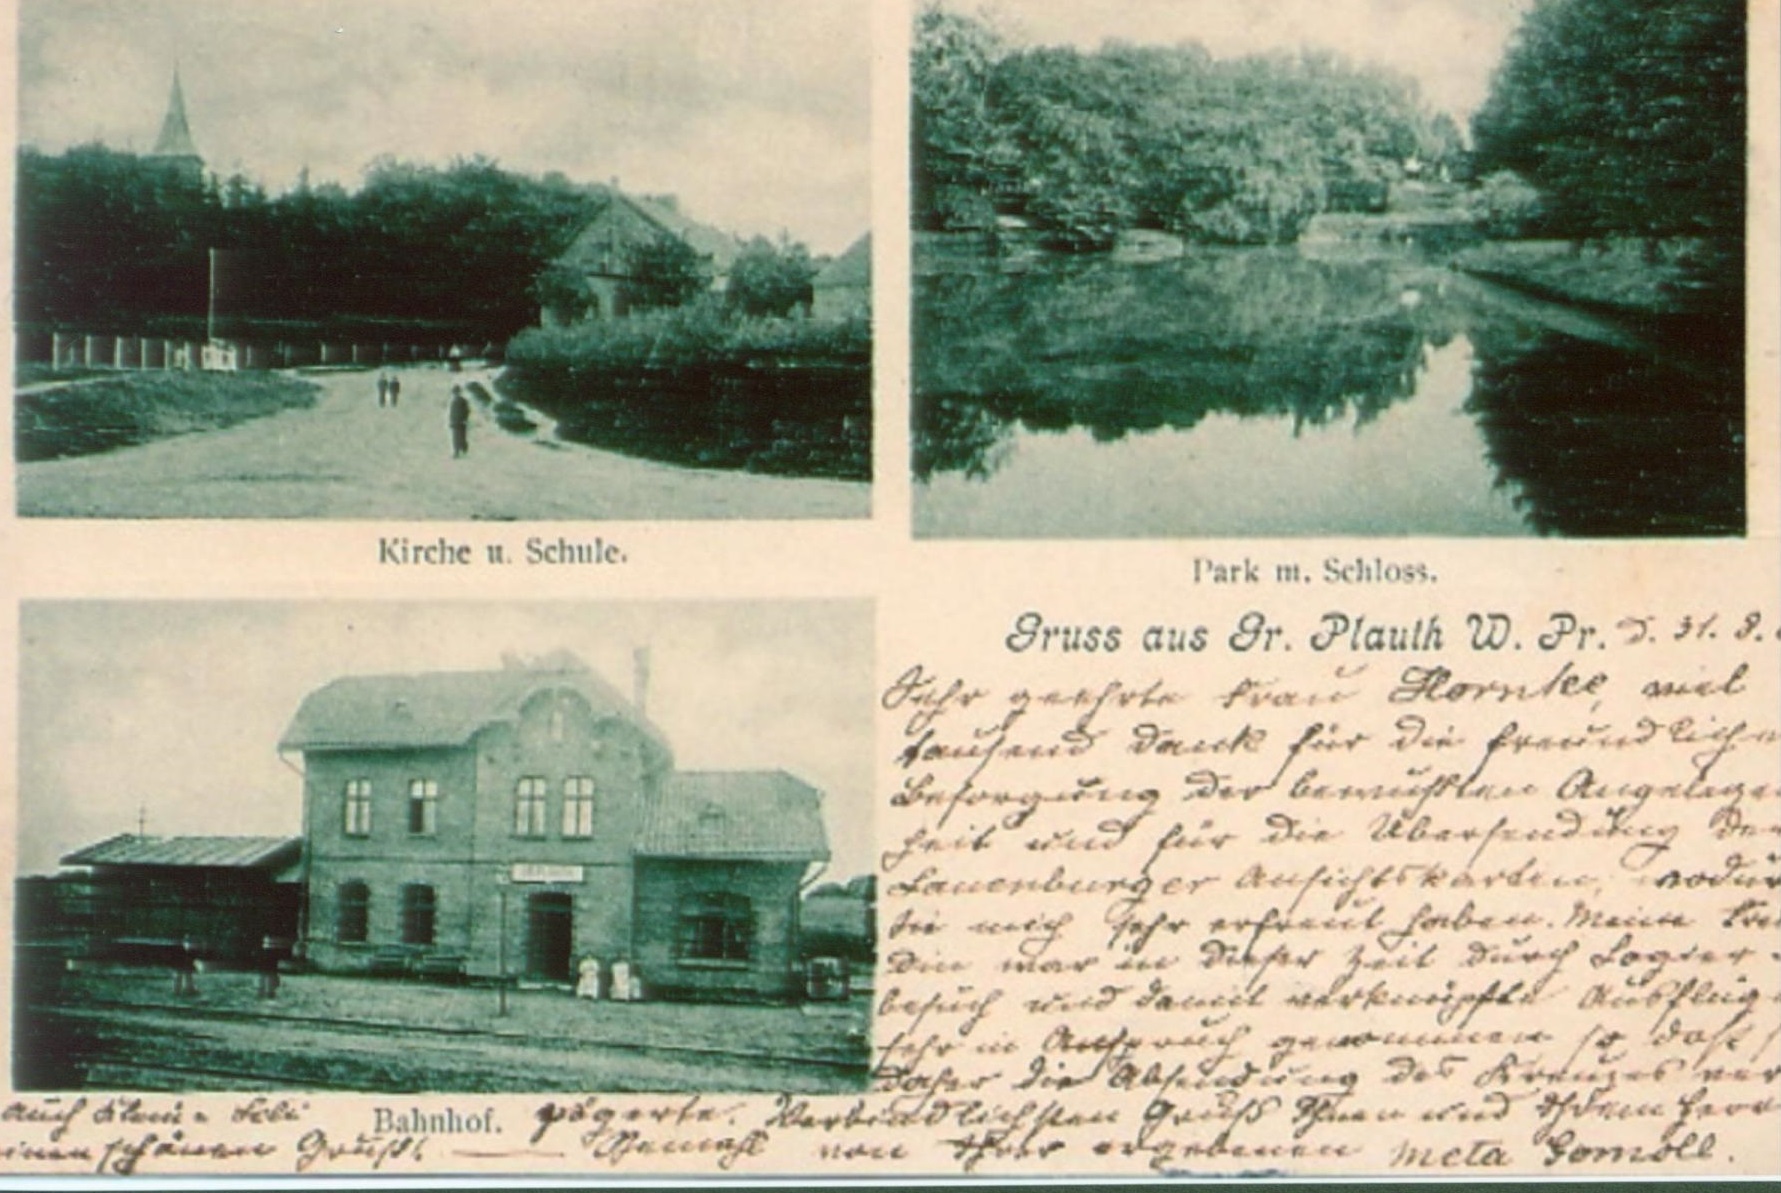 Kirche u. Schule.
Park m. Schloss.
Gruss aus Gr. Plauth W. Pr. d. 31. 8.
Sehr geehrte Frau Hornke, viel
tausend Dank für die freundliche
Besorgung der bewußten Angelegen
heit und für die Übersendung der
Lauenburger Ansichtskarten, wodur
Sie mich sehr erfreut haben. Meine Freu
din war in dieser Zeit durch Logier-
besuch und damit verknüpfte Ausflüge
sehr in Anspruch genommen so daß s
daher die Absendung des Kreuzes ver
zögerte. Verbindlichsten Gruß Ihnen und Ihrem Herrn
Gemahl von Ihrer ergebenen Meta Gomoll.
Bahnhof.
auch
einen schönen Gruß!